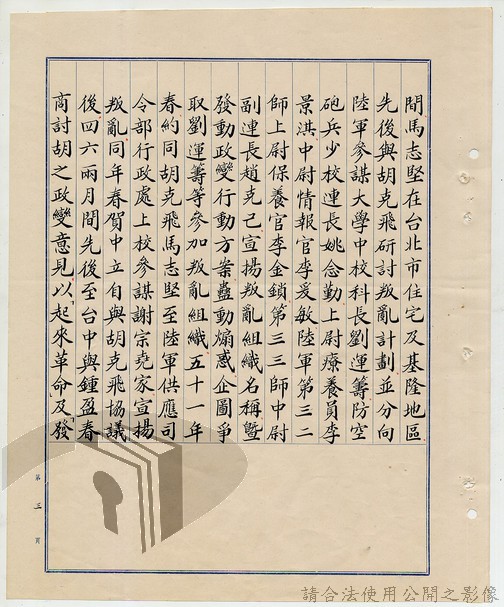 間馬志堅在台北市住宅及基隆地區
先後與胡克飛研討叛亂計劃並分向
陸軍參謀大學中校科長劉運籌防空
砲兵少校連長姚念勤上尉療養員李
景淇中尉情報官李爰敏陸軍第三二
師上尉保養官李金鎖第三三師中尉
副連長趙克己宣揚叛亂組織名稱暨
發動政變行動方案蠱動煽惑企圖爭
取劉運籌等參加叛亂組織五十一年
春約同胡克飛馬志堅至陸軍供應司
令部行政處上校參謀謝宗堯家宣揚
叛亂同年春賀中立自與胡克飛協議
後四六兩月間先後至台中與鍾盈春
商討胡之政變意見以「起來革命」及「發
第三頁
請合法使用公開之影像